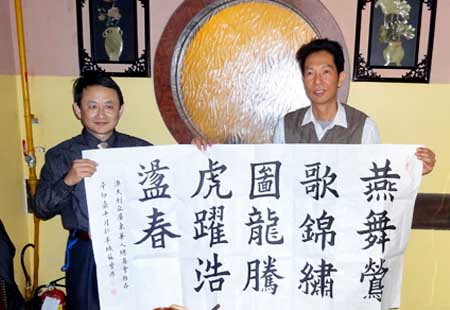 燕舞鶯
歌錦繡
圖龍騰
虎躍浩
盪春
澳大利亞廣東華人總商會雅存
辛卯
羊城